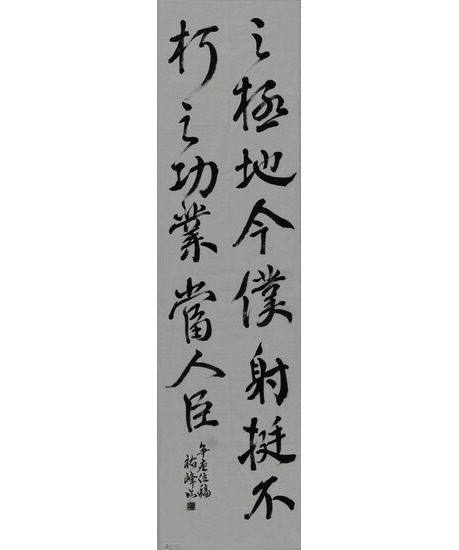 之極地今僕射挺不
朽之功業當人臣
争座位稿
祐峰臨